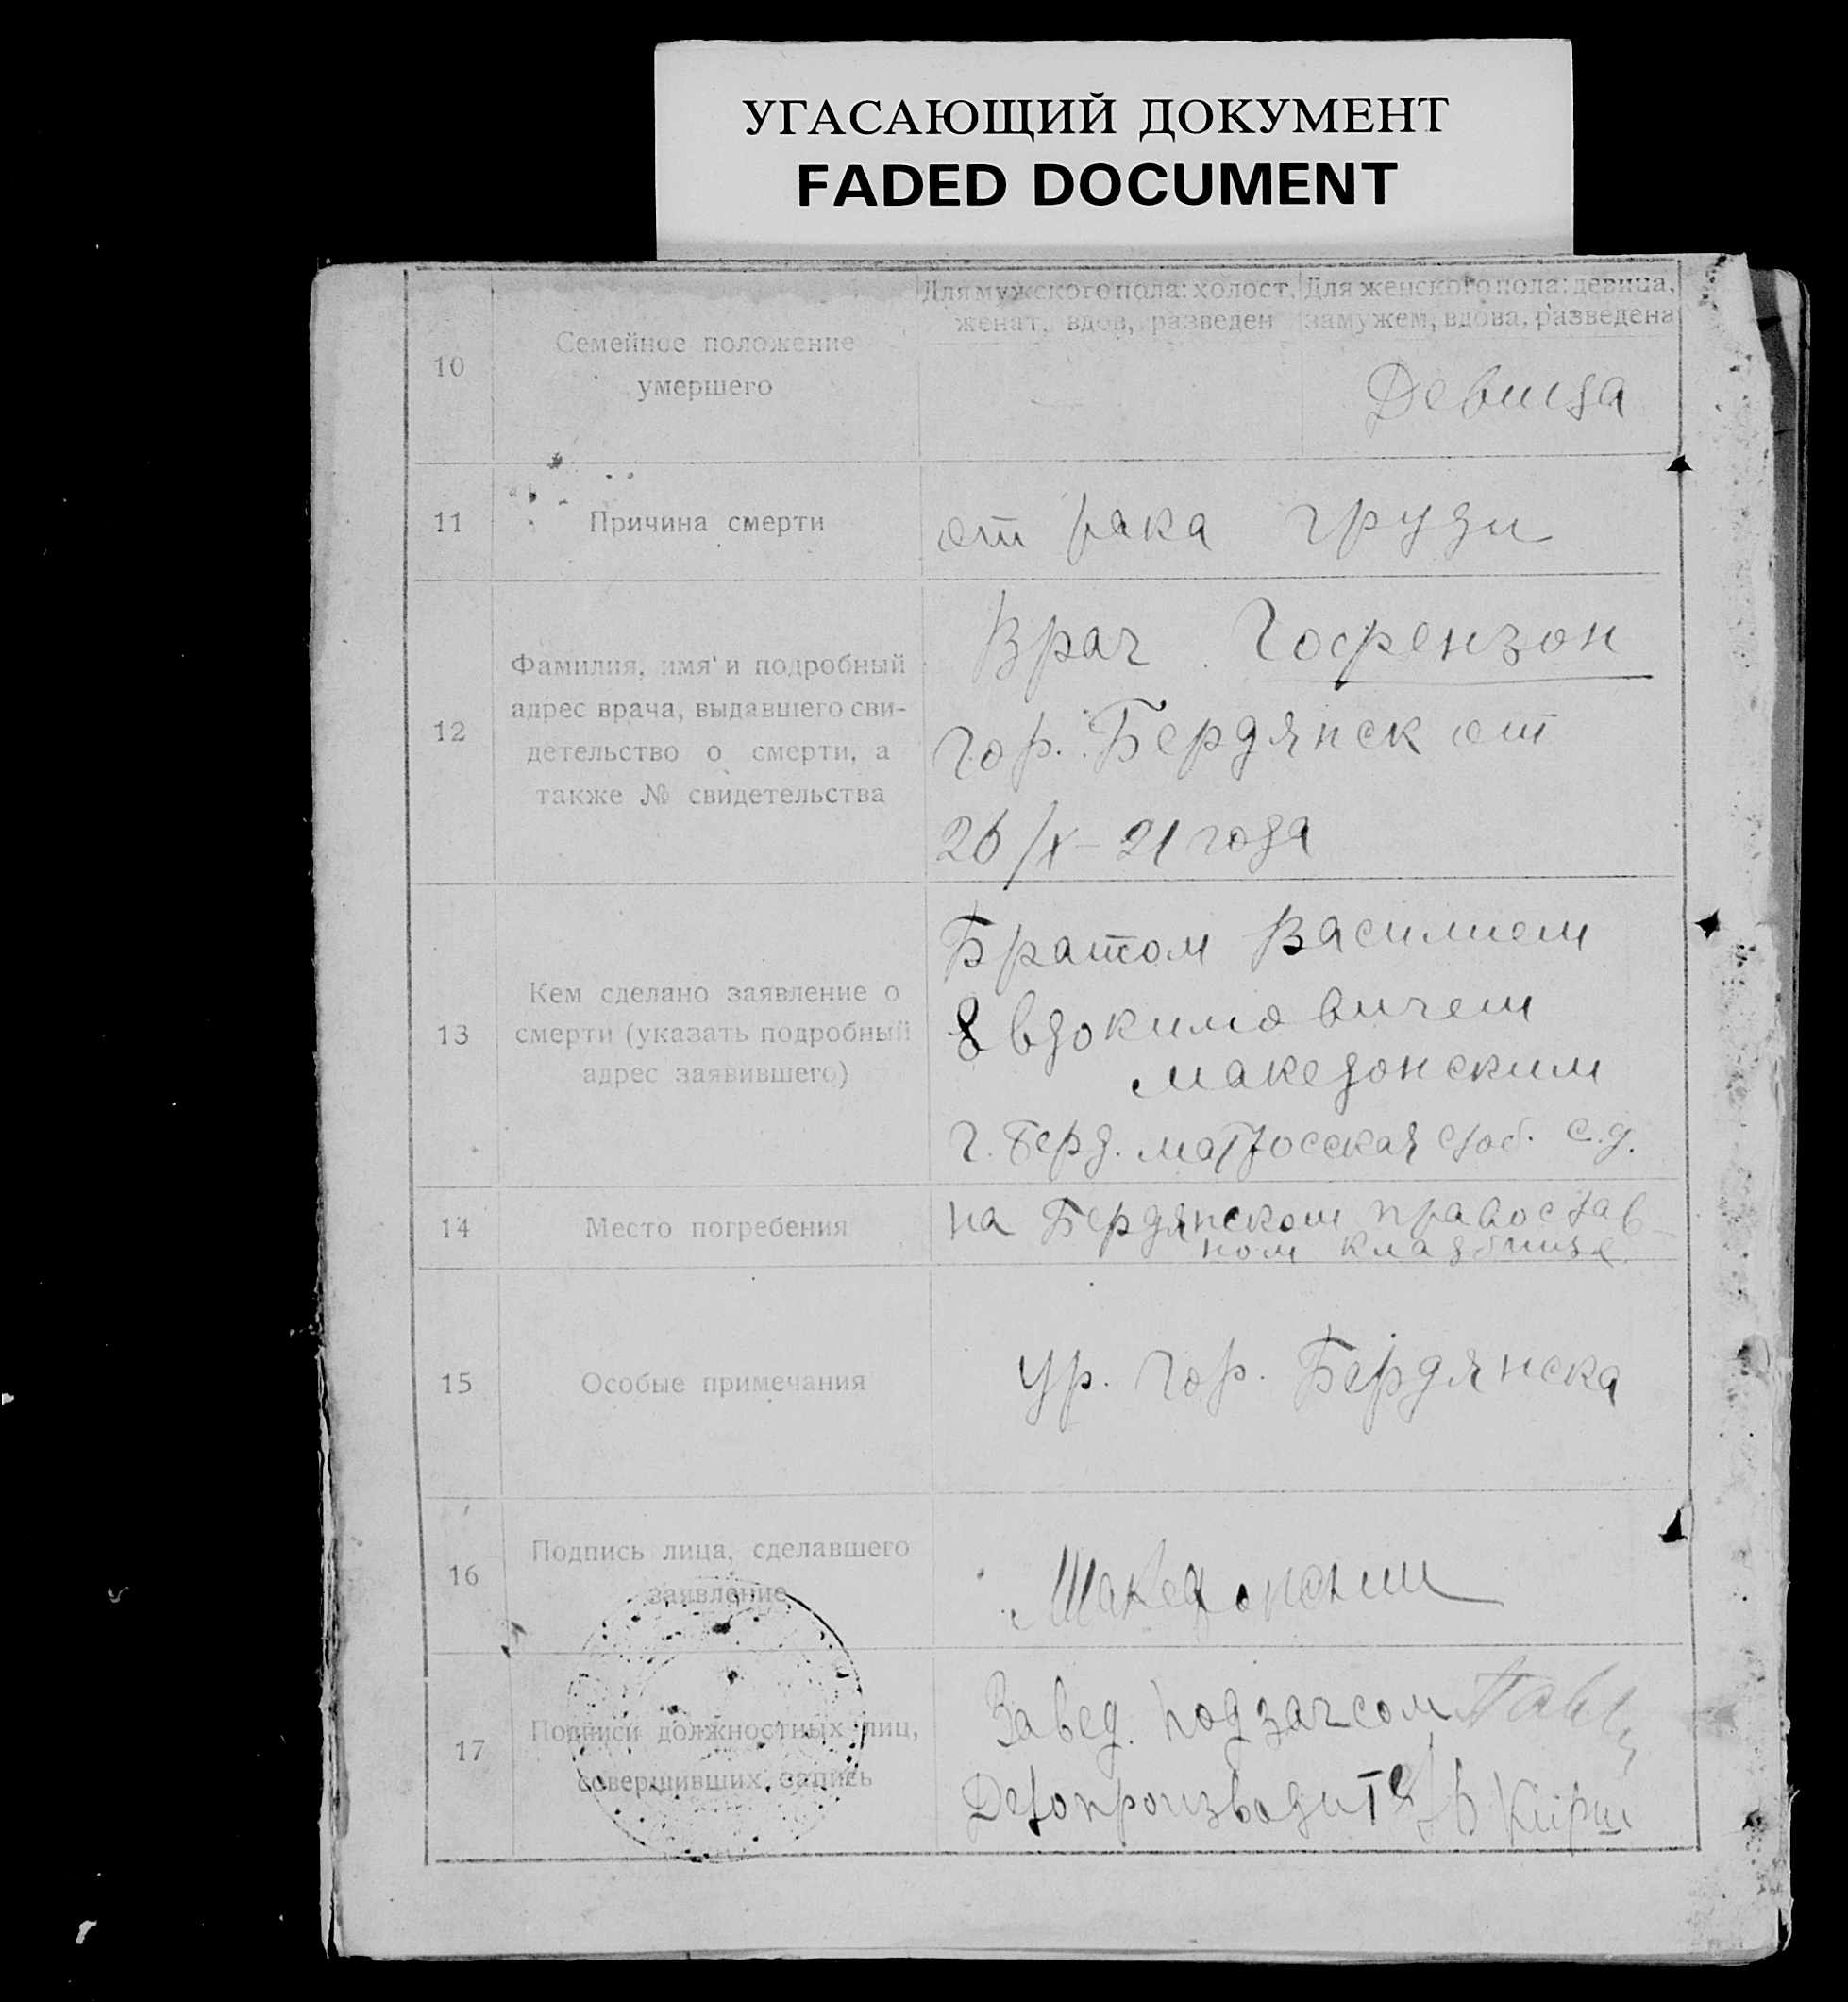 УГАСАЮЩИЙ ДОКУМЕНТ
FADED DOCUMENT
10
Семейное положение
умершего
Для мужского пола: холост,
женат, вдов, разведен
Для женского пола: девица,
замужем, вдова, разведена
Девица
11
Причина смерти
от рака груди
12
Фамилия, имя и подробный
адрес врача, выдавшего сви-
детельство о смерти, а
также № свидетельства
Врач Гофензон
гор. Бердянск от
26/X - 21 года
13
Кем сделано заявление о
смерти (указать подробный
адрес заявившего)
Братом Василием
Евдокимовичем
Македонским
г. Берд. матросская слоб. с.д.
14
Место погребения
на Бердянском православ-
ном кладбище
15
Особые примечания
ур. гор. Бердянска
16
Подпись лица, сделавшего
заявление
17
Подписи должностных лиц,
совершивших запись
Завед. подзагсом
Делопроизводитель